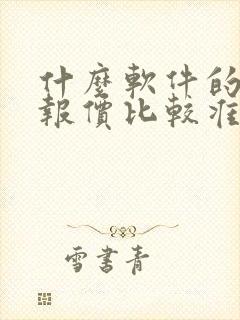 什麼軟件的
報價比較准
雪書青